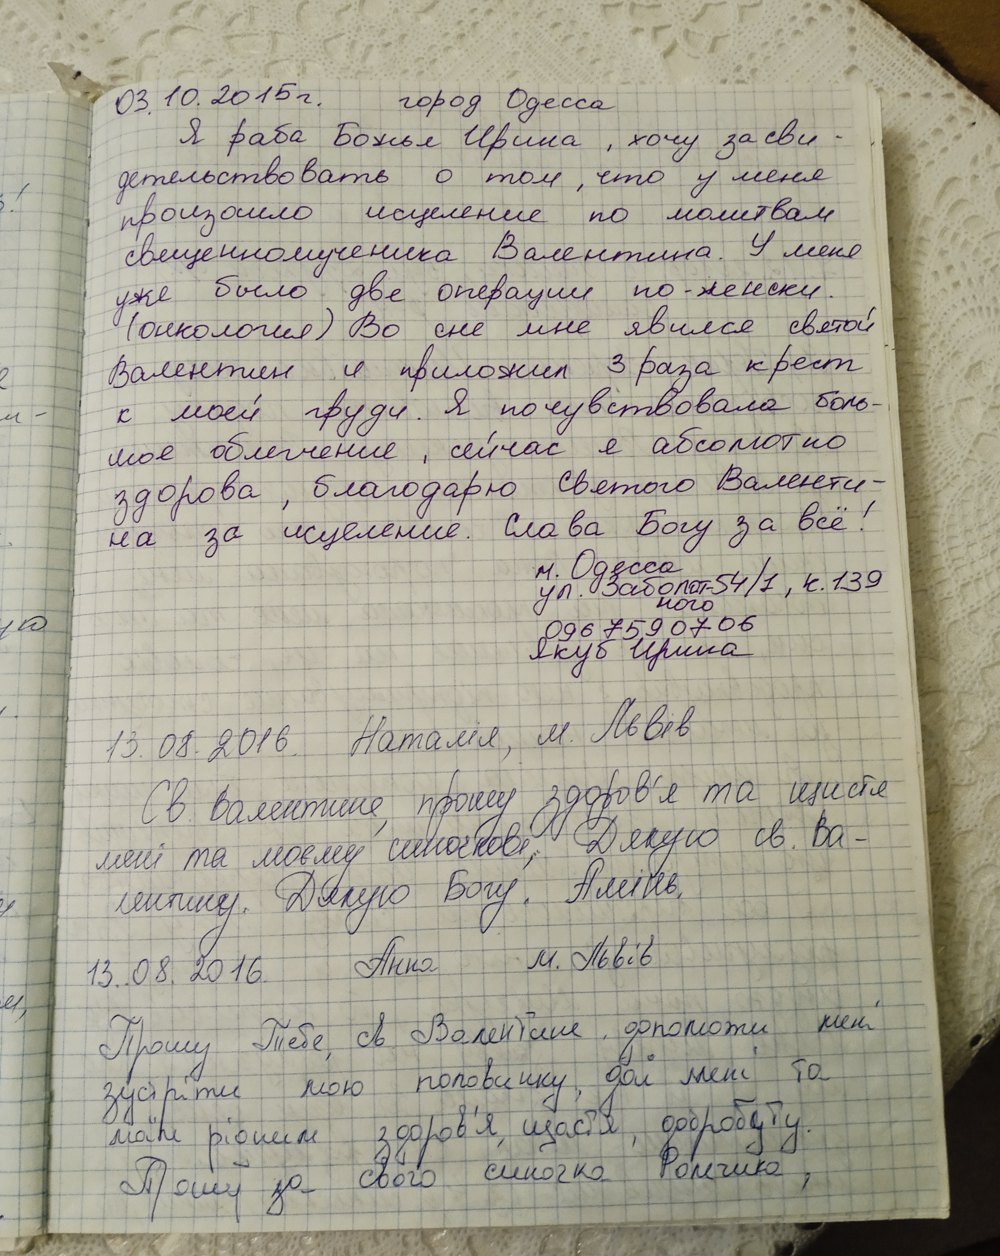 03.10.2015г. город Одесса
Я раба Божья Ирина, хочу засви-
детельствовать о том, что у меня
произошло исцеление по молитвам
священномученика Валентина. У меня
уже было две операции по-женски.
(онкология) Во сне мне явился святой
Валентин и приложил 3 раза крест
к моей груди. Я почувствовала боль-
шое облегчение, сейчас я абсолютно
здорова, благодарю Святого Валенти-
на за исцеление. Слава Богу за всё!
м. Одесса
ул. Заболот-54/1, к. 139
ного
0967590706
Якуб Ирина
13.08.2016. Наталія, м. Львів
Св. Валентине, прошу здоров'я та щастя
мені та моєму синочкові, Дякую св. Ва-
лентину. Дякую Богу. Амінь.
13.08.2016. Анна м. Львів
Прошу Тебе, св Валентине, допоможи мені
зустріти мою половинку, дай мені та
моїм рідним здоров'я, щастя, добробуту.
Прошу за свого синочка Ромчика,